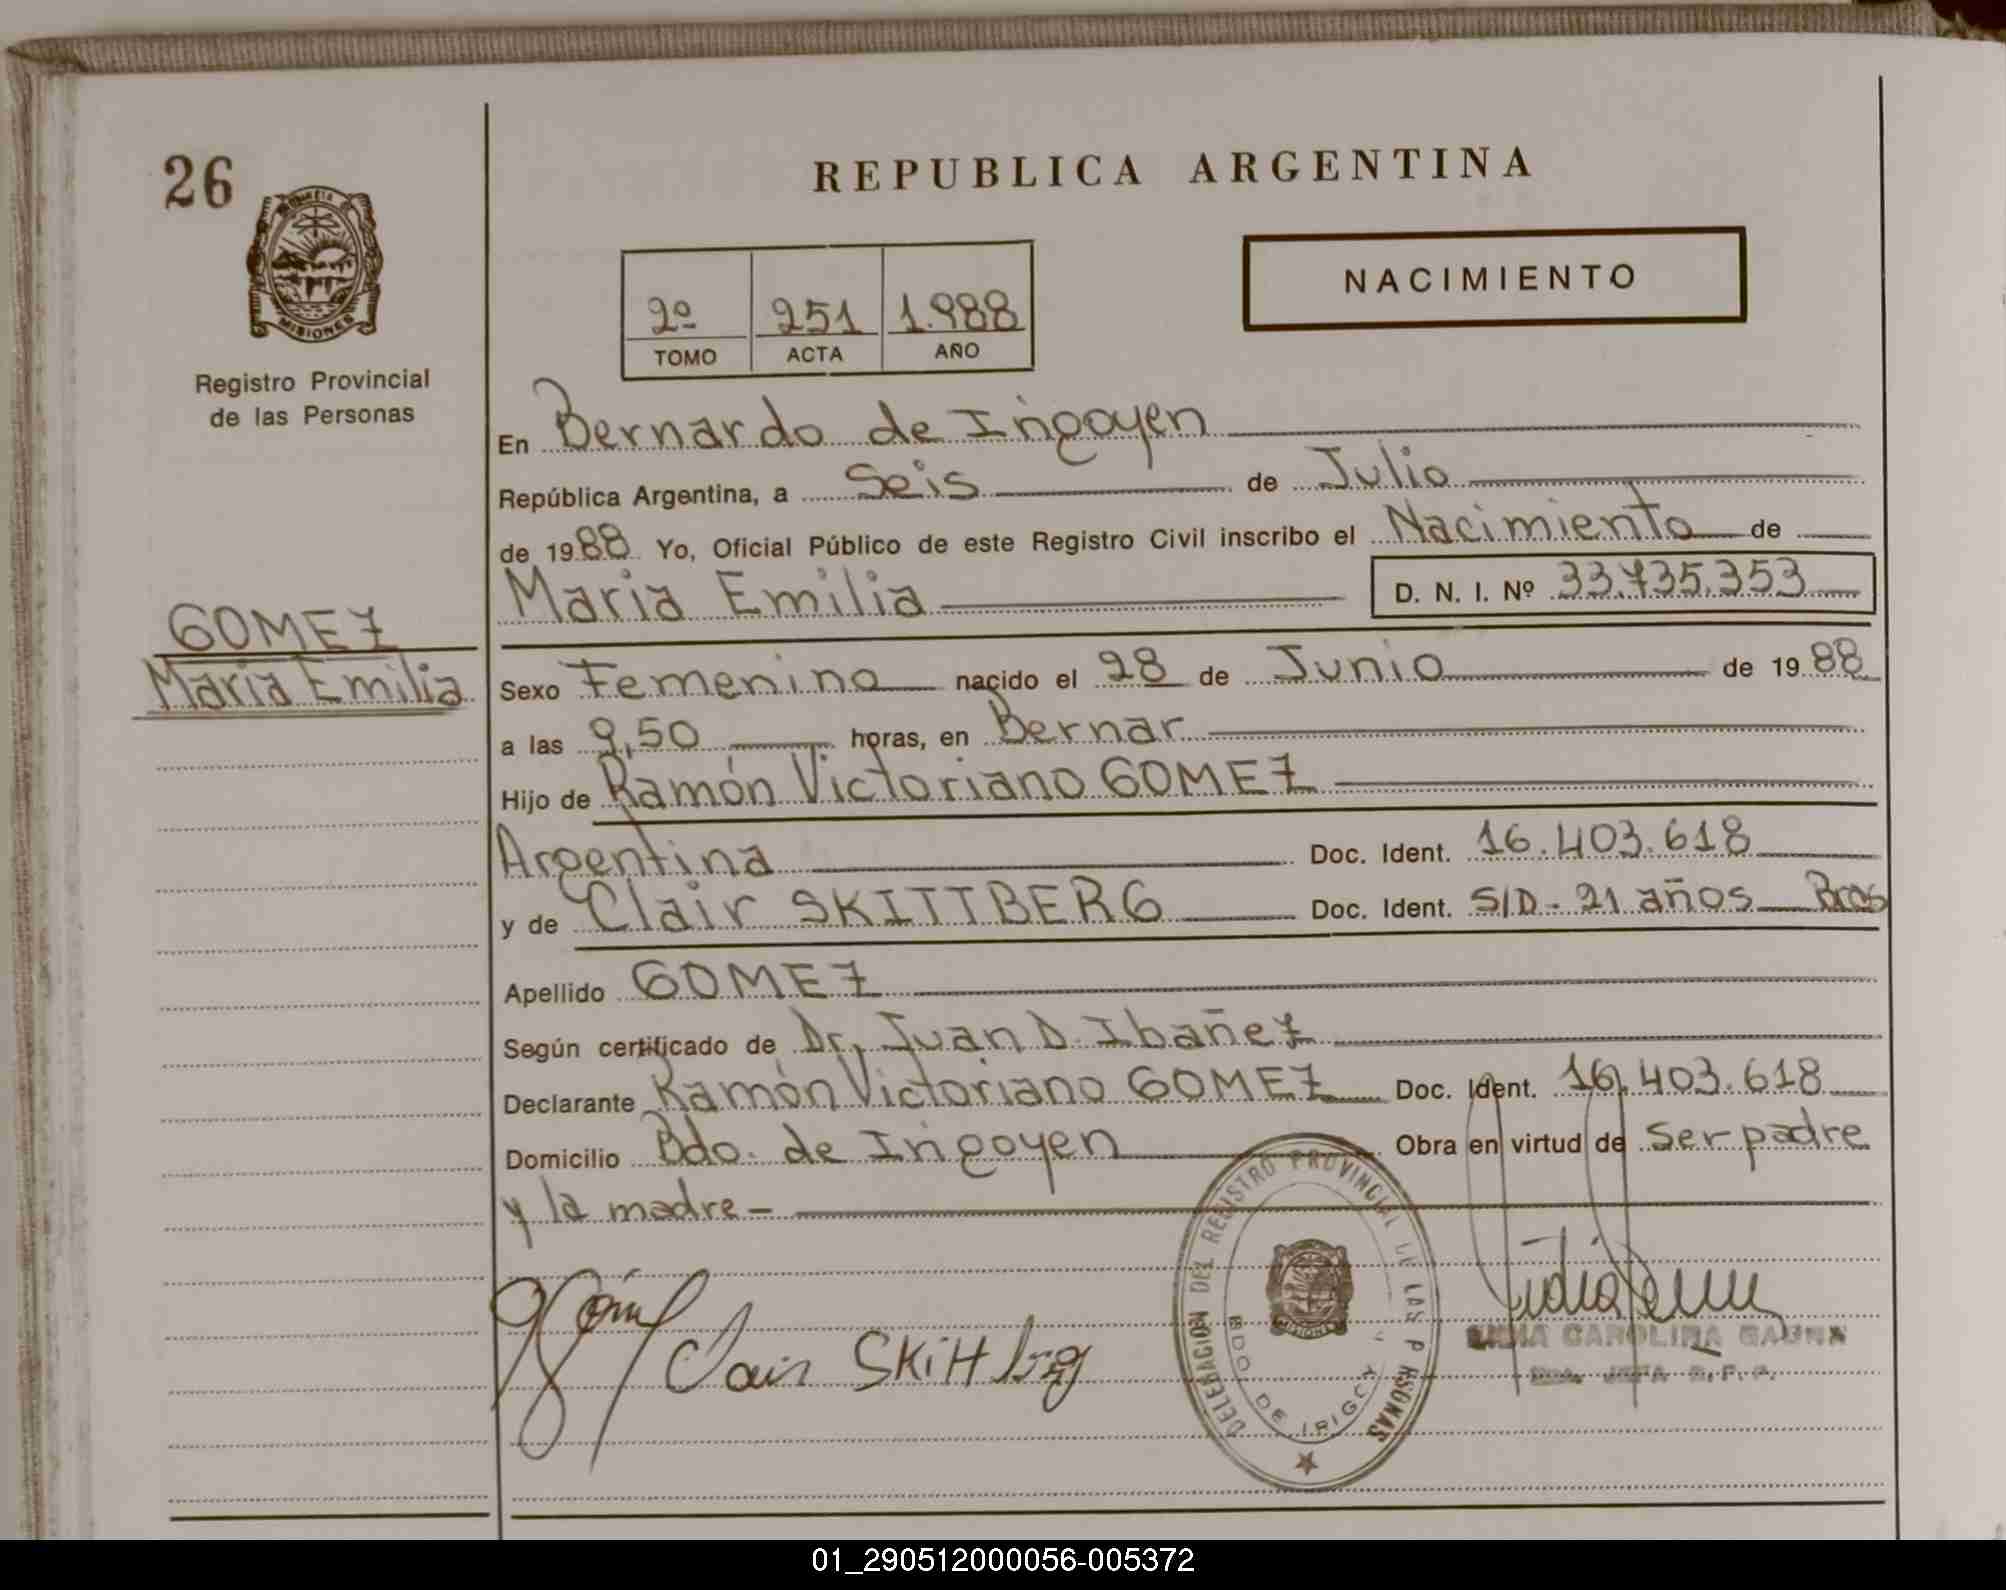 26
MISIONES
Registro Provincial
de las Personas
GOMEZ
Maria Emilia
REPUBLICA ARGENTINA
NACIMIENTO
2º 251 1.988
TOMO ACTA AÑO
En Bernardo de Irigoyen
República Argentina, a Seis de Julio
de 1988 Yo, Oficial Público de este Registro Civil inscribo el Nacimiento de
Maria Emilia D. N. I. Nº 33.735.353
Sexo Femenino nacido el 28 de Junio de 1988
a las 9,50 horas, en Bernar
Hijo de Ramón Victoriano GOMEZ
Argentina Doc. Ident. 16.403.618
y de Clair SKITTBERG Doc. Ident. S/D - 21 años Bras
Apellido GOMEZ
Según certificado de Dr. Juan D. Ibañez
Declarante Ramón Victoriano GOMEZ Doc. Ident. 16.403.618
Domicilio Bdo. de Irigoyen Obra en virtud de ser padre
y la madre -
Clair SKittberg
DELEGACION DEL REGISTRO PROVINCIAL DE LAS P RSONAS
BDO DE IRIGOY
MISIONES
LIDIA CAROLINA GAUNA
JEFA R. P. P.
01_290512000056-005372